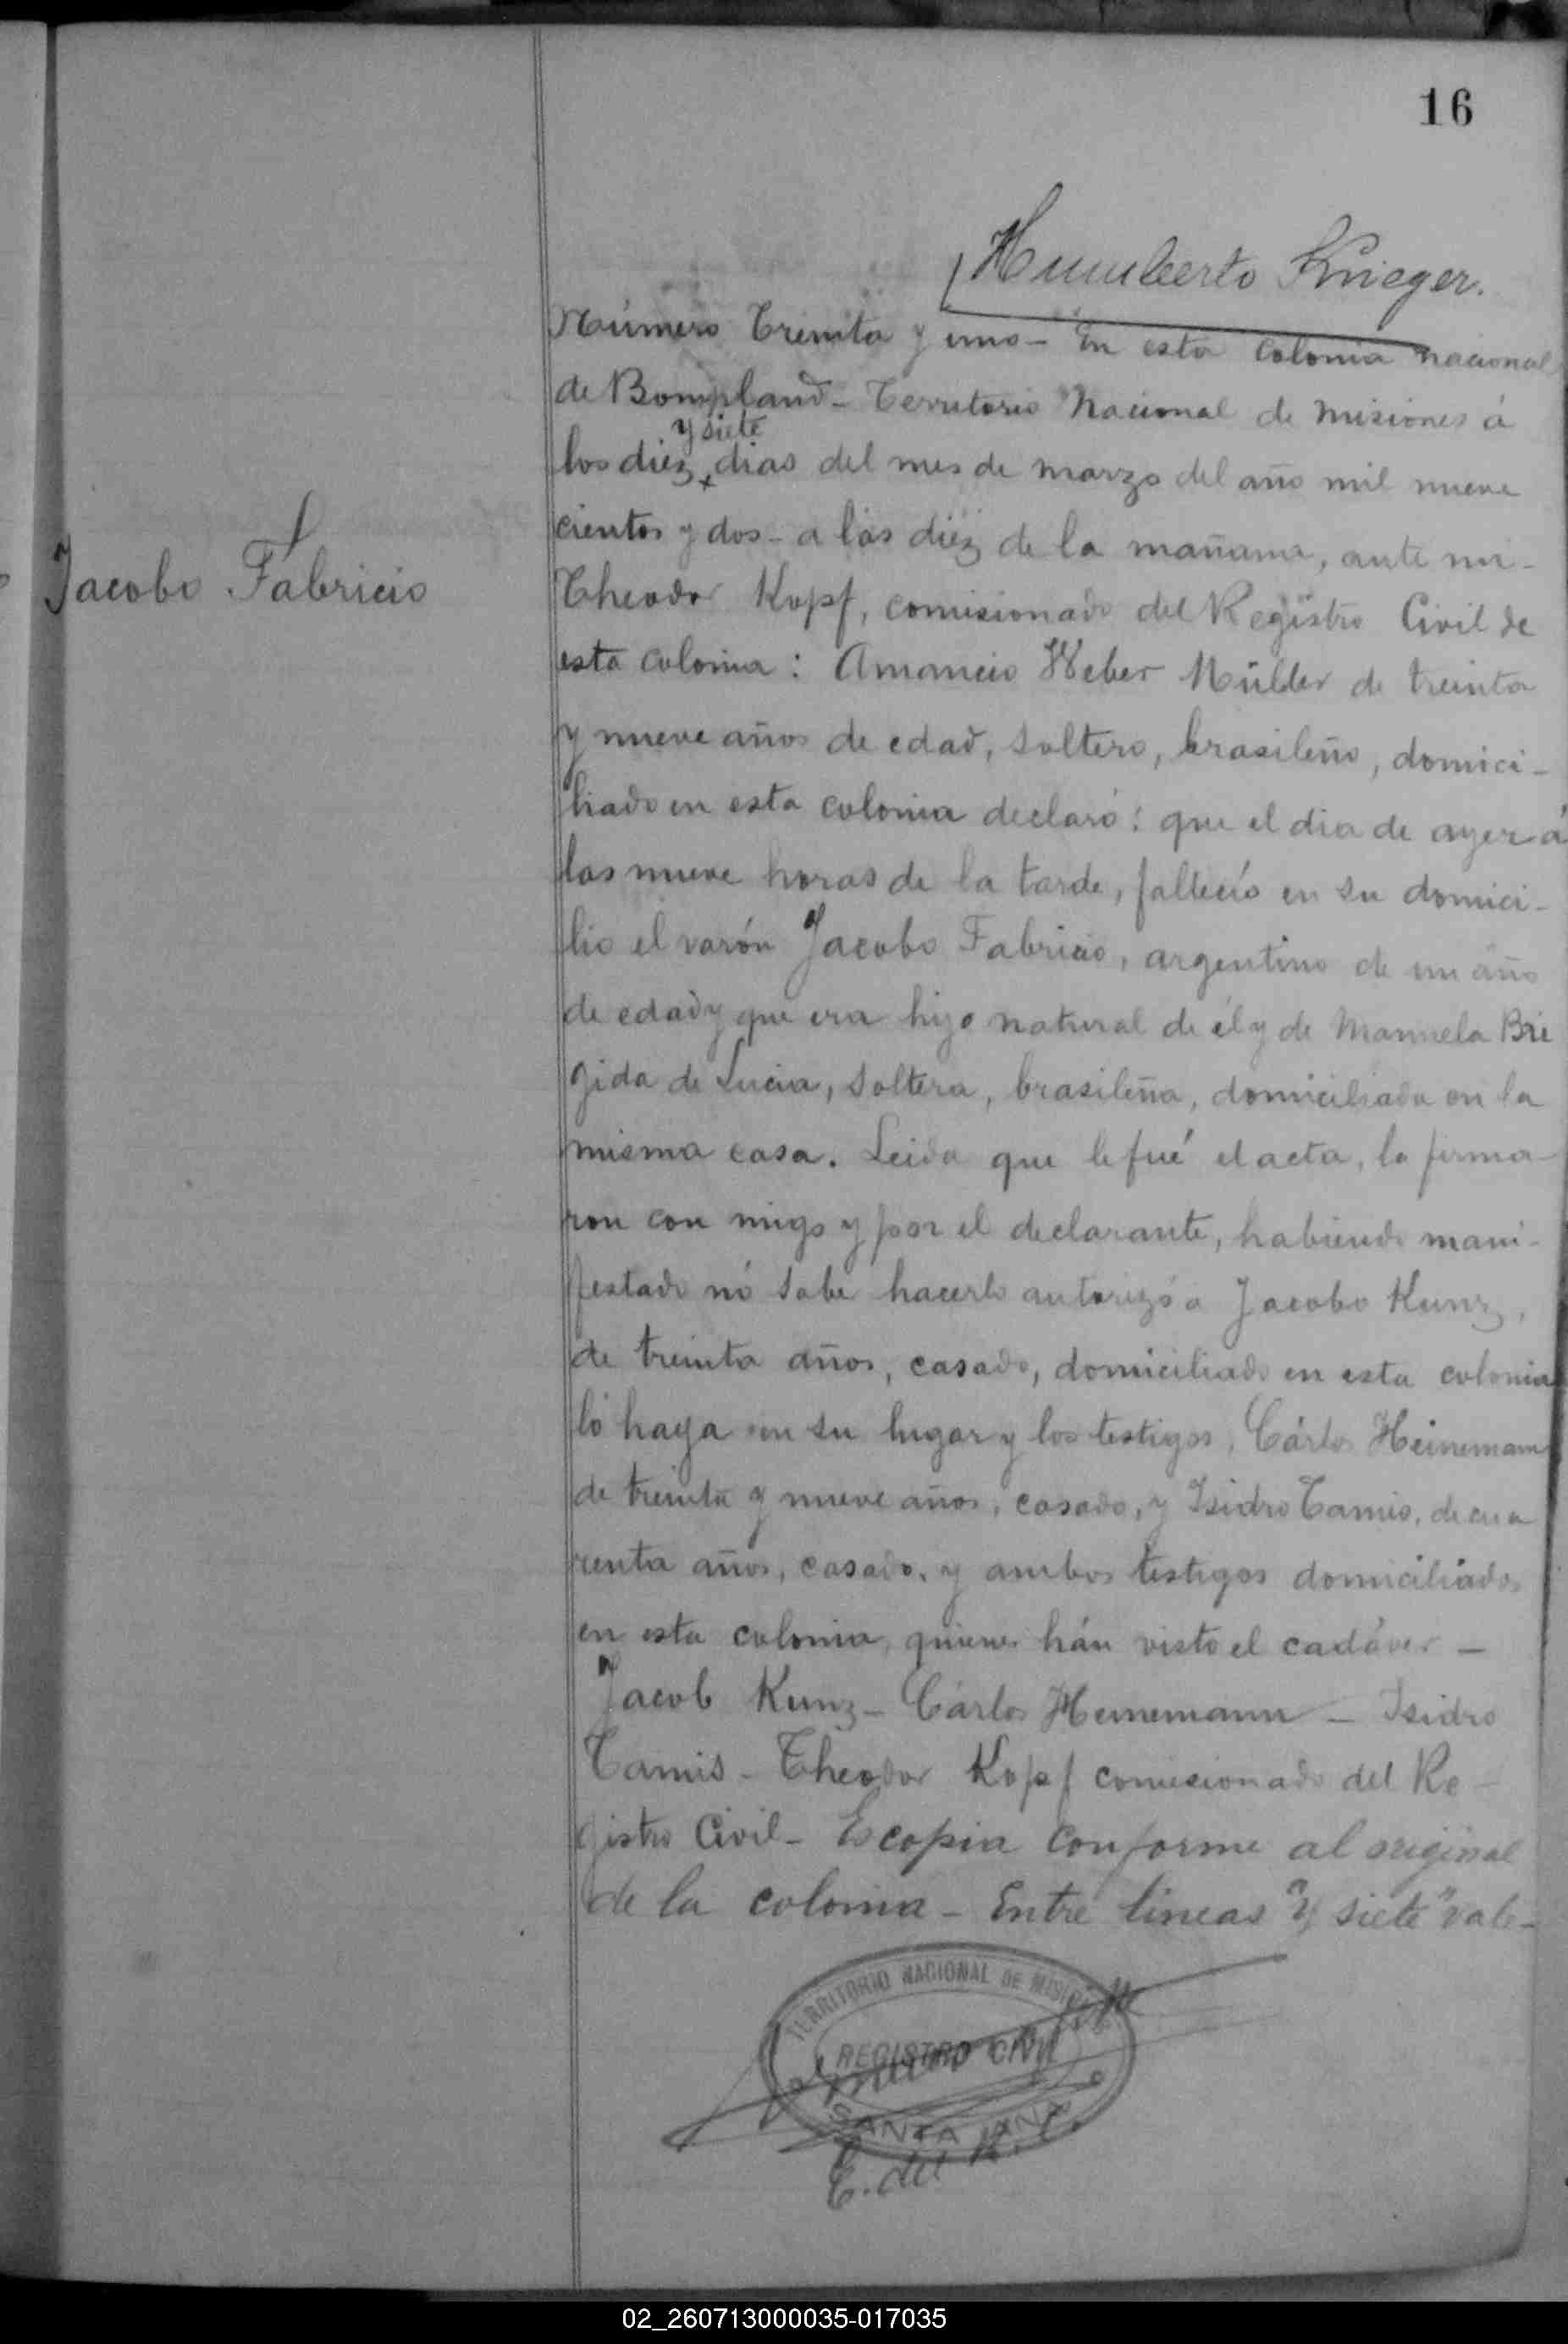 16
Humberto Krieger.
Número Treinta y uno - En esta colonia nacional
de Bompland - Territorio Nacional de Misiones á
y siete
los diez dias del mes de marzo del año mil nueve
cientos y dos - a las diez de la mañana, ante mi -
Jacobo Fabricio
Theodor Kopf, comisionado del Registro Civil de
esta colonia : Amancio Weber Müller de treinta
y nueve años de edad, soltero, brasileño, domici -
liado en esta colonia declaró : que el dia de ayer á
las nueve horas de la tarde, falleció en su domici -
lio el varón Jacobo Fabricio, argentino de un año
de edad y que era hijo natural de él y de Manuela Bri
gida de Lucia, soltera, brasileña, domiciliada en la
misma casa. Leida que le fué el acta, la firma -
ron con migo y por el declarante, habiendo mani -
festado nó sabe hacerlo autorizó a Jacobo Kunz,
de treinta años, casado, domiciliado en esta colonia
lo haga en su lugar y los testigos, Cárlos Heinemann
de treinta y nueve años, casado, y Isidro Tamis, de cua
renta años, casado, y ambos testigos domiciliados
en esta colonia, quienes hán visto el cadáver -
Jacob Kunz - Cárlos Heinemann - Isidro
Tamis - Theodor Kopf comisionado del Re -
gistro Civil - Es copia conforme al original
de la colonia - Entre lineas "y siete" vale -
TERRITORIO NACIONAL DE MISIONES
REGISTRO CIVIL
SANTA ANA
E. del R. C.
02_260713000035-017035